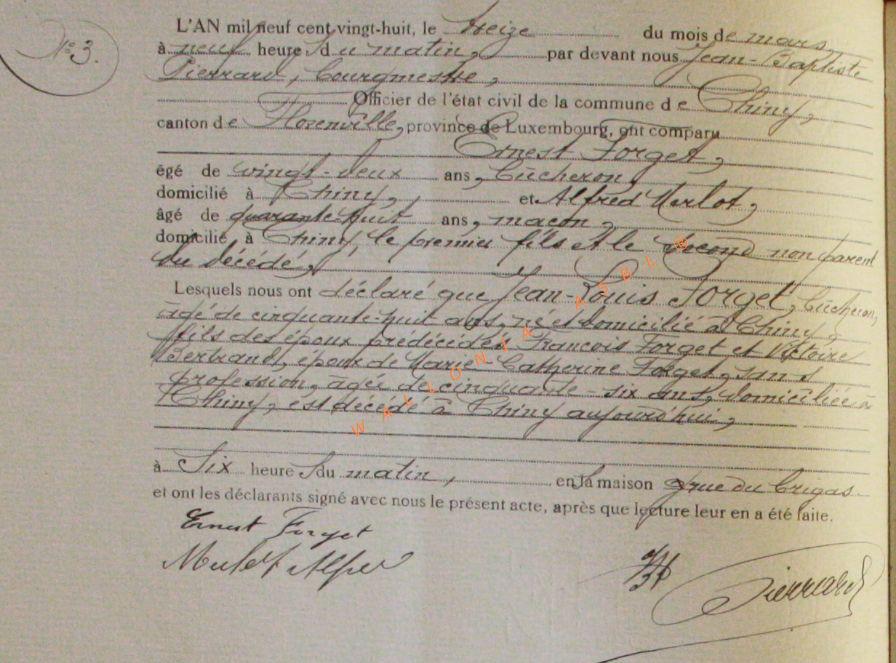 N° 3.
L'AN mil neuf cent vingt-huit, le treize du mois de mars,
à neuf heures du matin, par devant nous Jean-Baptiste
Pierrard, bourgmestre,
Officier de l'état civil de la commune de Chiny,
canton de Florenville, province de Luxembourg, ont comparu
Ernest Forget,
égé de vingt-deux ans, bûcheron,
domicilié à Chiny, et Alfred Merlot,
âgé de quarante-huit ans, maçon,
domicilié à Chiny, le premier fils et le second non parent
du décédé,
Lesquels nous ont déclaré que Jean-Louis Forget, bûcheron,
âgé de cinquante-huit ans, né et domicilié à Chiny,
fils des époux prédécédés François Forget et Victoire
Bertrand, époux de Marie-Catherine Forget, sans
profession, âgée de cinquante-six ans, domiciliée à
Chiny, est décédé à Chiny aujourd'hui,
à Six heures du matin, en sa maison rue du
et ont les déclarants signé avec nous le présent acte, après que lecture leur en a été faite.
Ernest Forget
Pierrard
WALLONIE